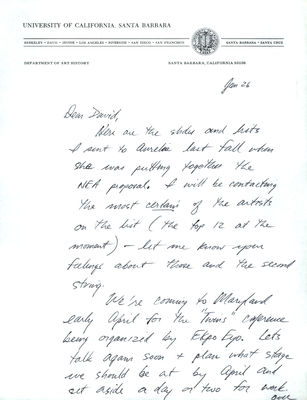 UNIVERSITY OF CALIFORNIA, SANTA BARBARA
BERKELEY • DAVIS • IRVINE • LOS ANGELES • RIVERSIDE • SAN DIEGO • SAN FRANCISCO
SANTA BARBARA • SANTA CRUZ
DEPARTMENT OF ART HISTORY
SANTA BARBARA, CALIFORNIA 93106
Jan 26
Dear David,
Here are the slides and lists
I sent to Aurelia last fall when
she was putting together the
NEA proposal. I will be contacting
the most certain of the artists
on the list (the top 12 at the
moment) - let me know your
feelings about those and the second
string.
We're coming to Maryland
early April for the "Twins" conference
being organized by Ekpo Eyo. Lets
talk again soon + plan what stage
we should be at by April and
set aside a day or two for work
over